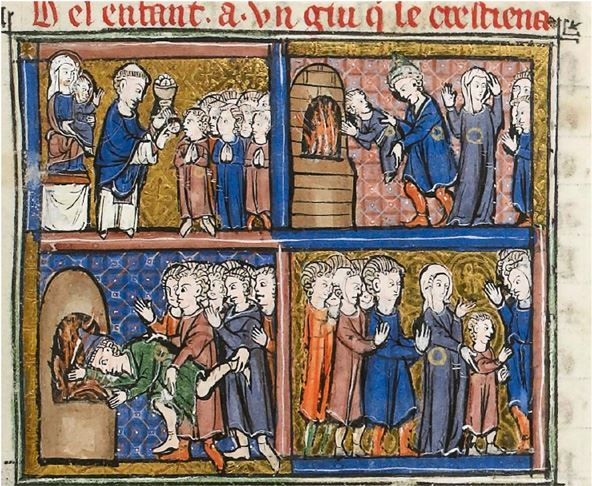 D el enfant . a . vn giu qͥ se crestiena